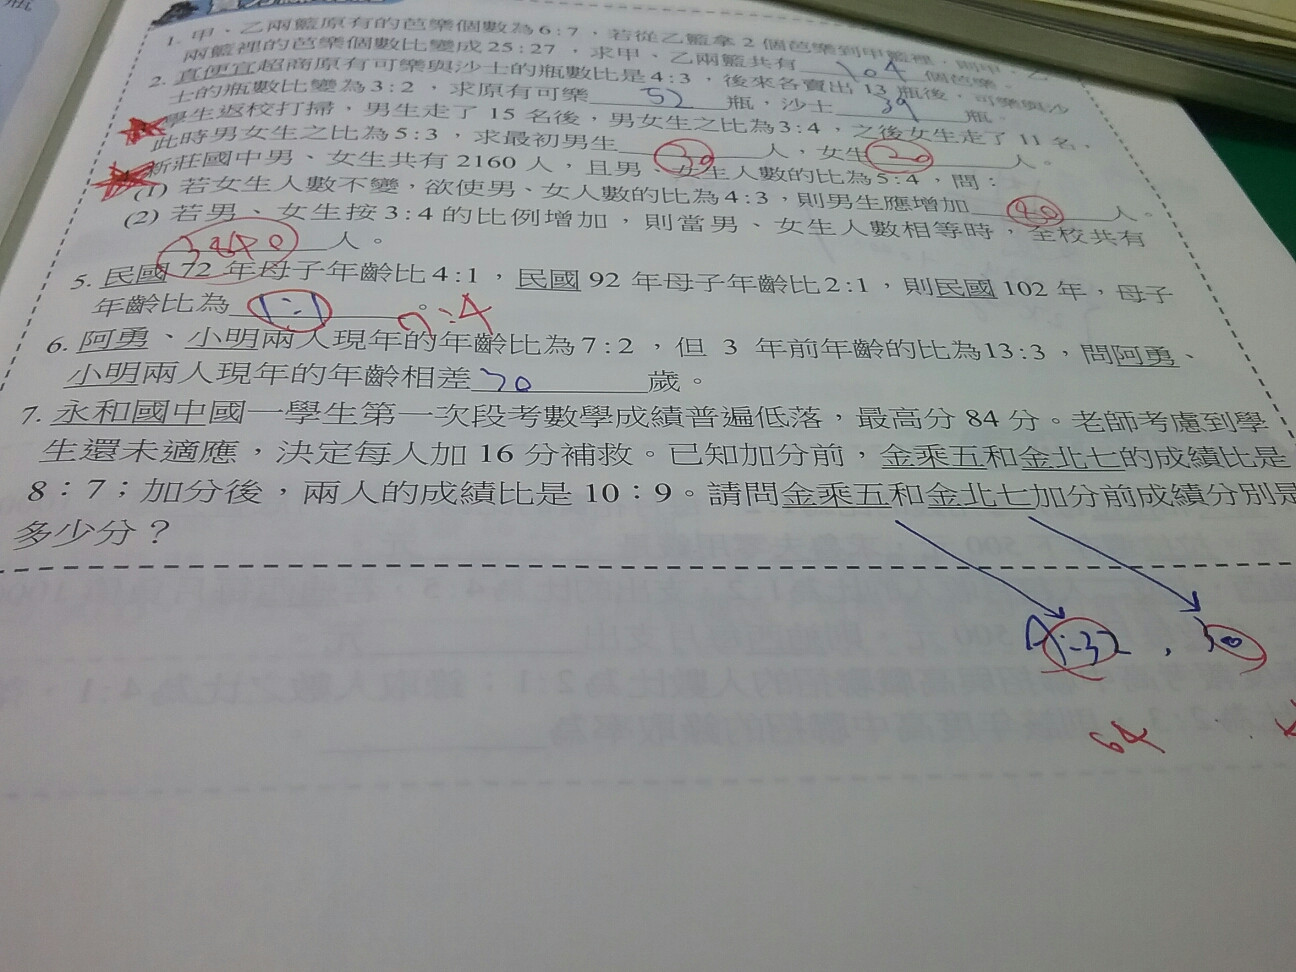 1. 甲、乙兩籃原有的芭樂個數為6:7，若從乙籃拿2個芭樂到甲籃裡，則甲、乙
兩籃裡的芭樂個數比變成25:27，求甲、乙兩籃共有 104 個芭樂。
2. 真便宜超商原有可樂與沙士的瓶數比是4:3，後來各賣出13瓶後，可樂與沙
士的瓶數比變為3:2，求原有可樂 52 瓶，沙士 39 瓶。
學生返校打掃，男生走了15名後，男女生之比為3:4，之後女生走了11名，
此時男女生之比為5:3，求最初男生 30 人，女生 20 人。
新莊國中男、女生共有2160人，且男、女生人數的比為5:4，問：
(1) 若女生人數不變，欲使男、女人數的比為4:3，則男生應增加 40 人。
(2) 若男、女生按3:4的比例增加，則當男、女生人數相等時，全校共有
3840 人。
5. 民國72年母子年齡比4:1，民國92年母子年齡比2:1，則民國102年，母子
年齡比為 1:1 。 7:4
6. 阿勇、小明兩人現年的年齡比為7:2，但3年前年齡的比為13:3，問阿勇、
小明兩人現年的年齡相差 30 歲。
7. 永和國中國一學生第一次段考數學成績普遍低落，最高分84分。老師考慮到學
生還未適應，決定每人加16分補救。已知加分前，金乘五和金北七的成績比是
8：7；加分後，兩人的成績比是10：9。請問金乘五和金北七加分前成績分別是
多少分？
A:32 ,
64